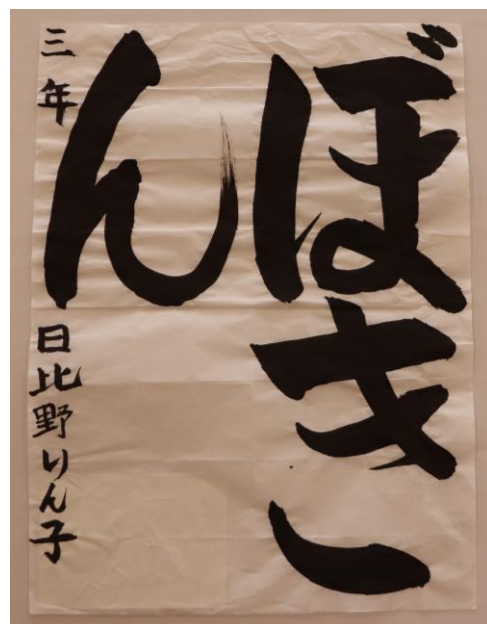 ぼき
ん
三年 日比野りん子